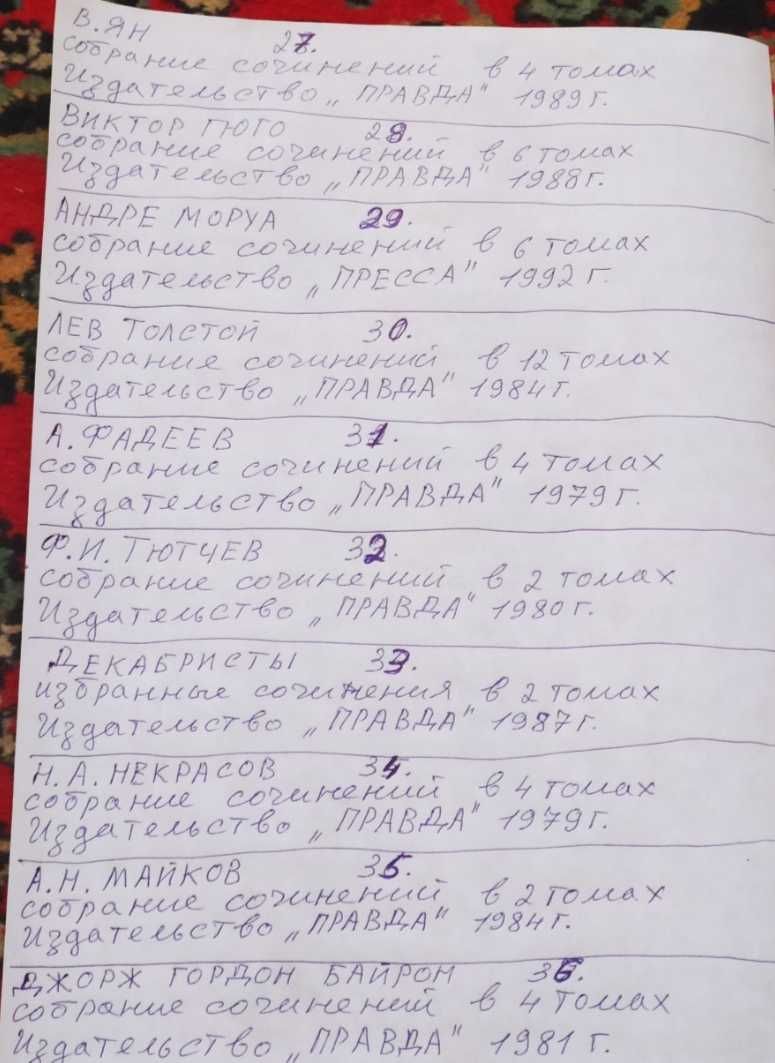 В. ЯН 27.
собрание сочинений в 4 томах
Издательство „ПРАВДА" 1989 г.
ВИКТОР ГЮГО 28.
собрание сочинений в 6 томах
Издательство „ПРАВДА" 1988 г.
АНДРЕ МОРУА 29.
собрание сочинений в 6 томах
Издательство „ПРЕССА" 1992 г.
ЛЕВ ТОЛСТОЙ 30.
собрание сочинений в 12 томах
Издательство „ПРАВДА" 1984 г.
А. ФАДЕЕВ 31.
собрание сочинений в 4 томах
Издательство „ПРАВДА" 1979 г.
Ф. И. ТЮТЧЕВ 32.
собрание сочинений в 2 томах
Издательство „ПРАВДА" 1980 г.
ДЕКАБРИСТЫ 33.
избранные сочинения в 2 томах
Издательство „ПРАВДА" 1987 г.
Н. А. НЕКРАСОВ 34.
собрание сочинений в 4 томах
Издательство „ПРАВДА" 1979 г.
А. Н. МАЙКОВ 35.
собрание сочинений в 2 томах
Издательство „ПРАВДА" 1984 г.
ДЖОРЖ ГОРДОН БАЙРОН 36.
собрание сочинений в 4 томах
Издательство „ПРАВДА" 1981 г.